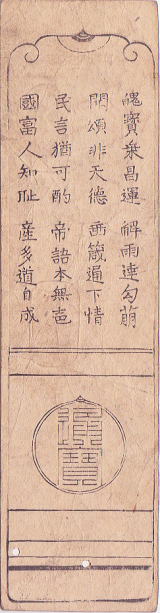 寶乘昌運 解雨連勾萌
頌非天德 箴通下情
民言猶可酌 帝語本無
國富人知恥 產多道自成
寶